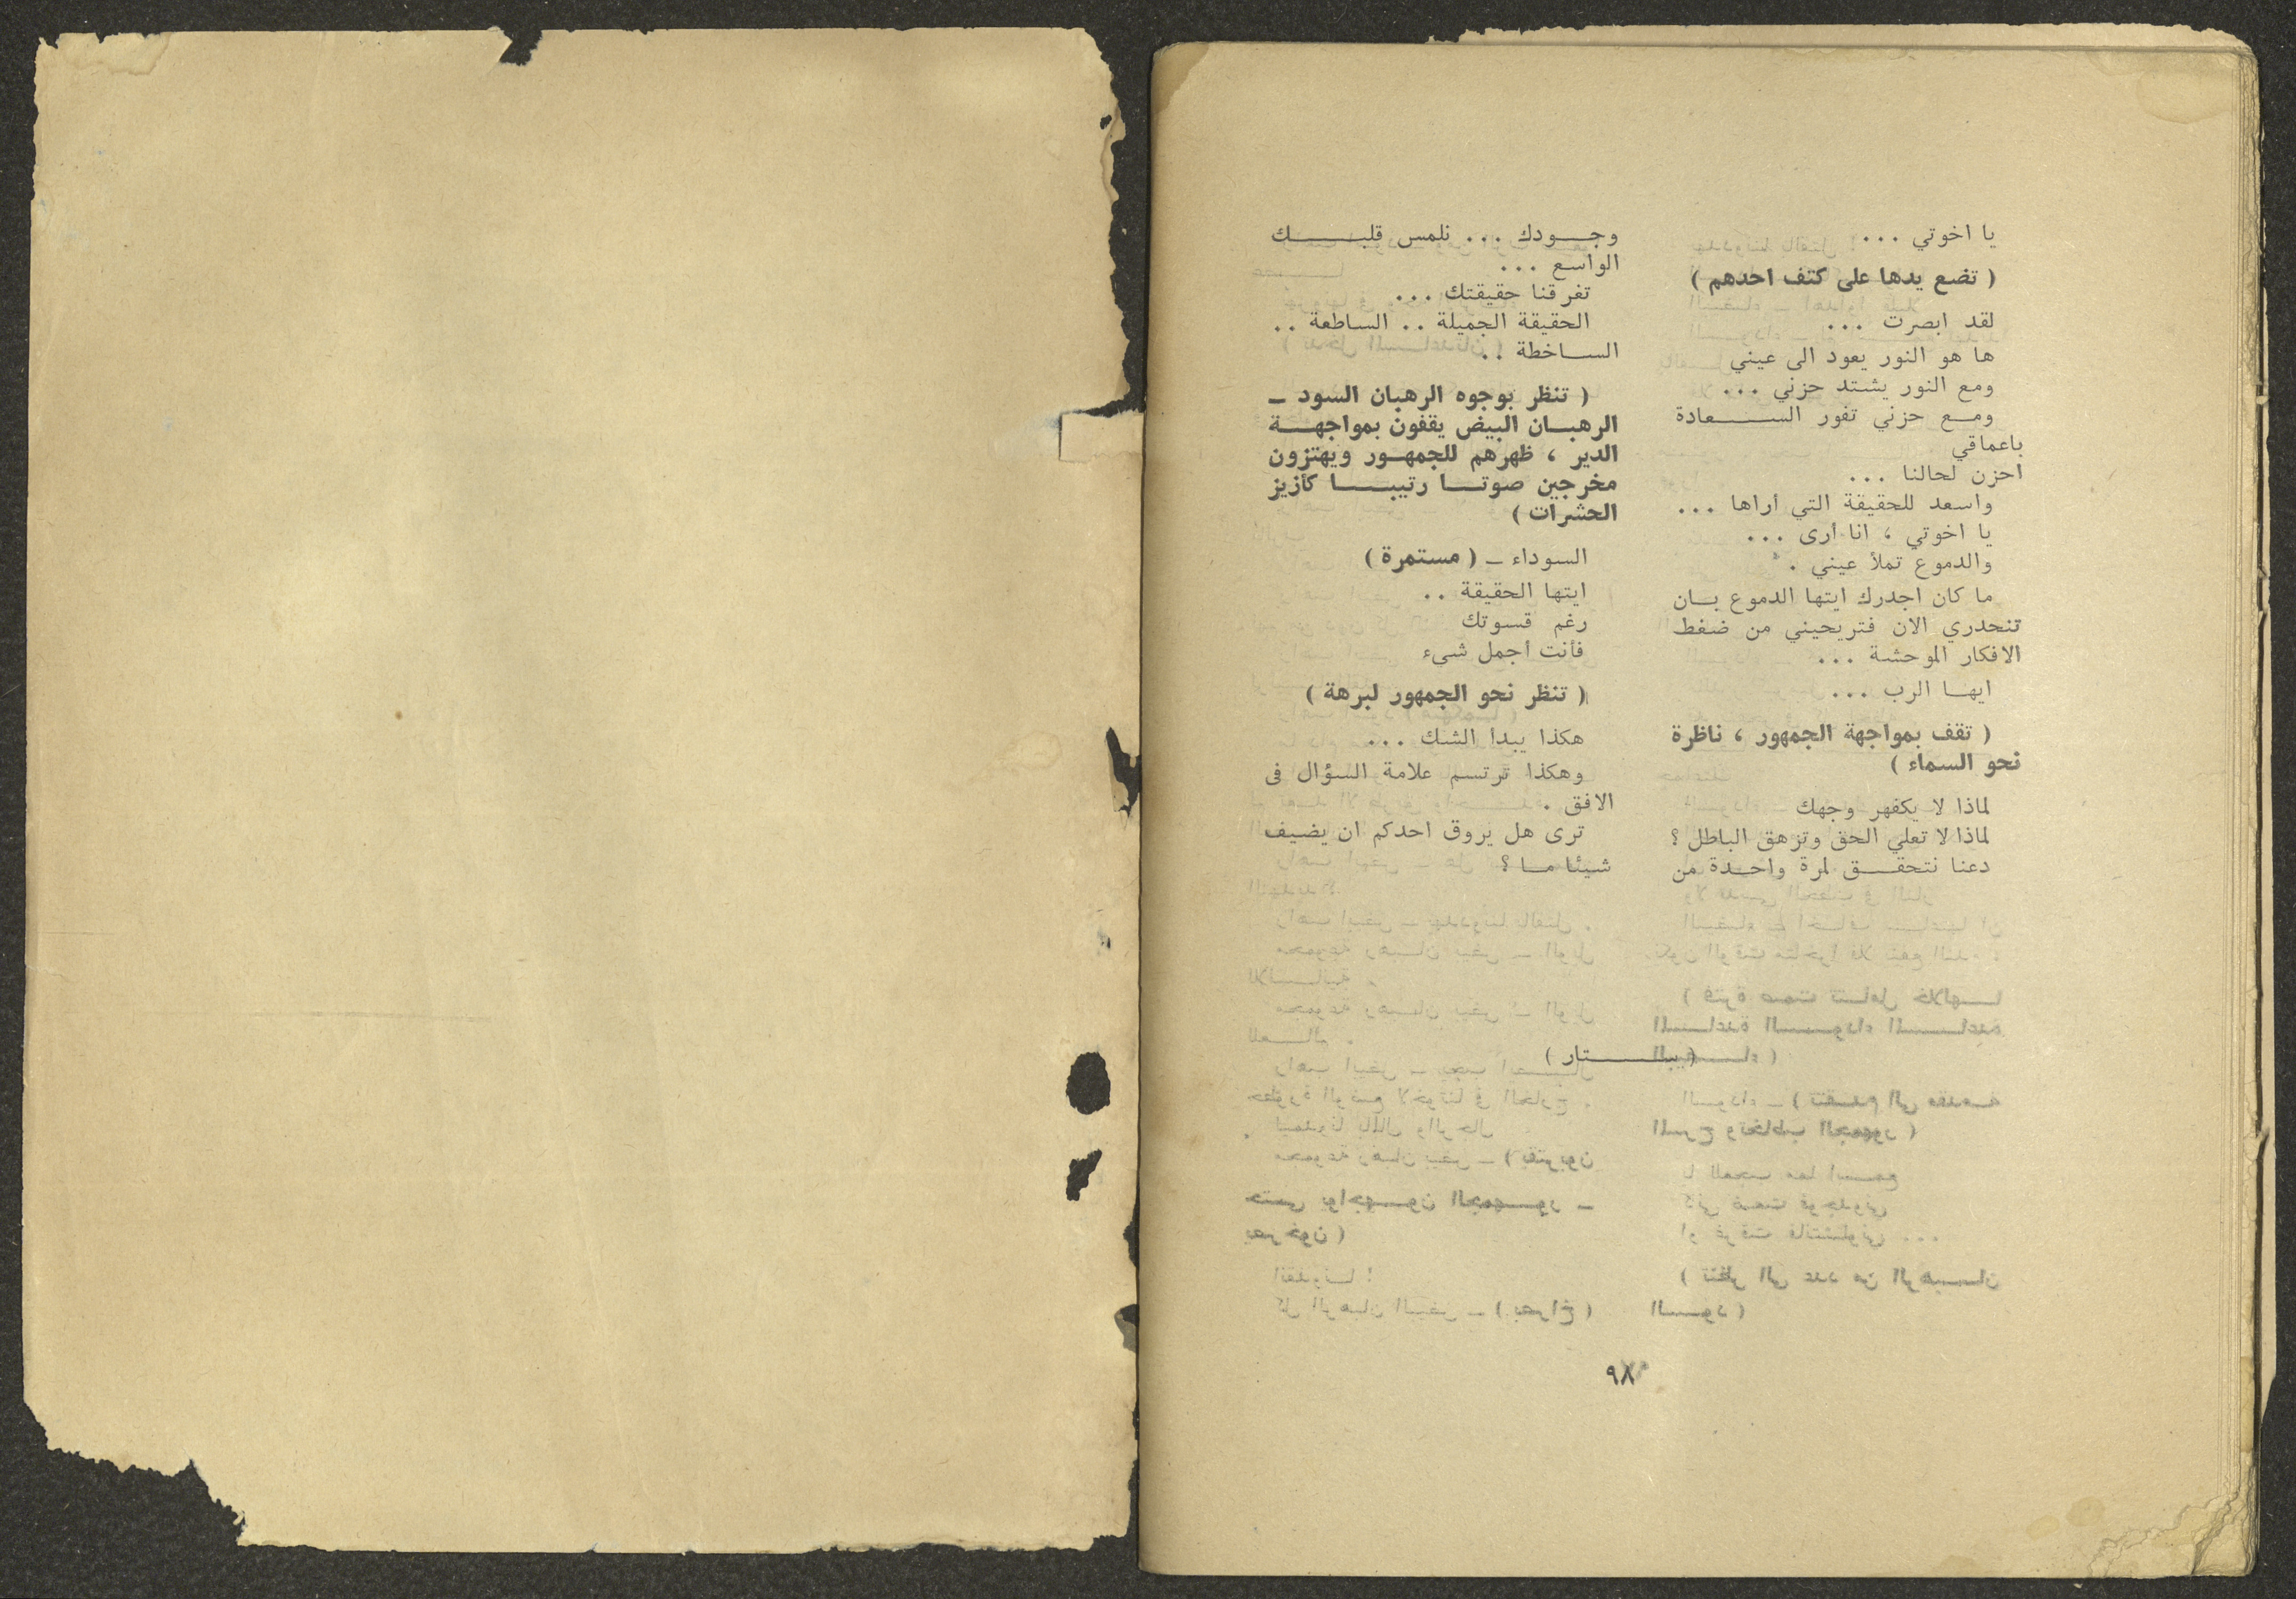 يا اخوتي ...
( تضع يدها على كتف احدهم )
لقد ابصرت ...
ها هو النور يعود الى عيني
ومع النور يشتد حزني ...
ومع حزني تفور السعادة
باعماقي
احزن لحالنا ...
واسعد للحقيقة التي أراها ...
يا اخوتي ، انا أرى ...
والدموع تملأ عيني .
ما كان اجدرك ايتها الدموع بان
تنحدري الان فتريحيني من ضغط
الافكار الموحشة ...
ايها الرب ...
( تقف بمواجهة الجمهور ، ناظرة
نحو السماء )
لماذا لا يكفهر وجهك
لماذا لا تعلي الحق وتزهق الباطل ؟
دعنا نتحقق لمرة واحدة من
وجودك ... نلمس قلبك
الواسع ...
تغرقنا حقيقتك ...
الحقيقة الجميلة .. الساطعة ..
الساخطة ..
( تنظر بوجوه الرهبان السود ـ
الرهبان البيض يقفون بمواجهة
الدير ، ظهرهم للجمهور ويهتزون
مخرجين صوتا رتيبا كأزيز
الحشرات )
السوداء ـ ( مستمرة )
ايتها الحقيقة ..
رغم قسوتك
فأنت أجمل شىء
( تنظر نحو الجمهور لبرهة )
هكذا يبدأ الشك ...
وهكذا ترتسم علامة السؤال فى
الافق .
ترى هل يروق احدكم ان يضيف
شيئا ما ؟
( يبتار )
٩٨